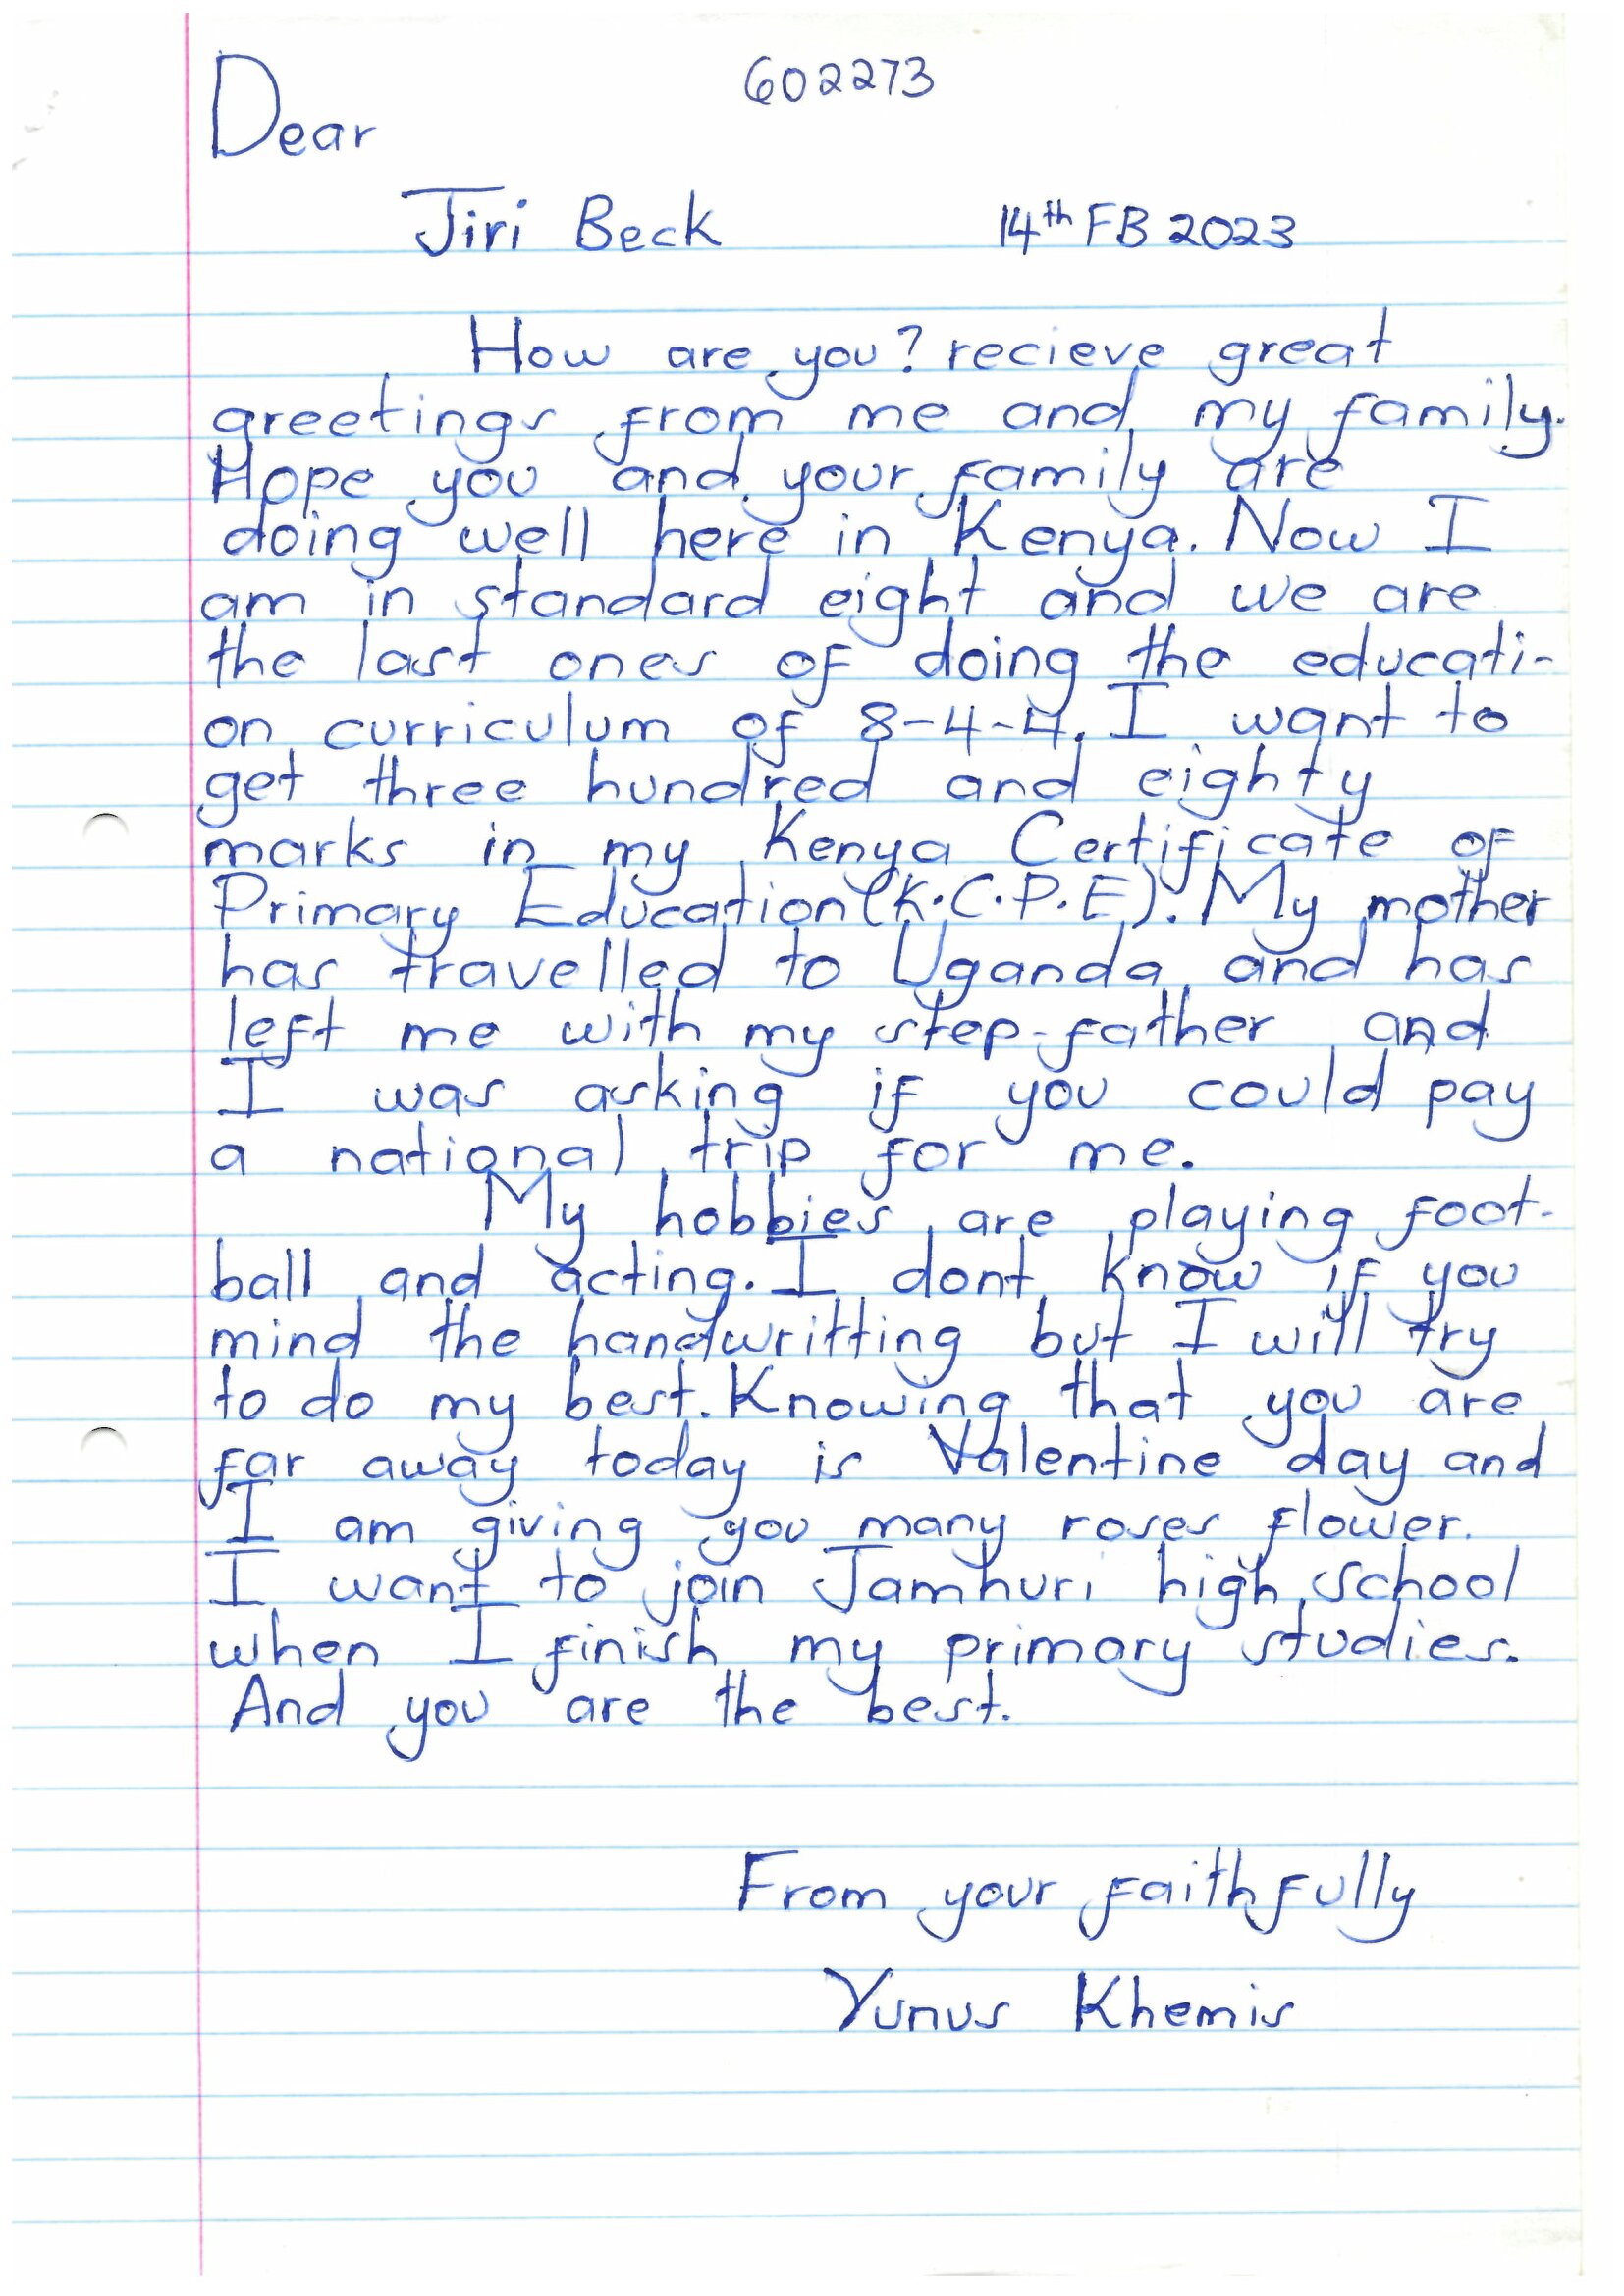 602273
Dear
Jiri Beck 14th FB 2023
How are you? recieve great
greetings from me and my family.
Hope you and your family are
doing well here in Kenya. Now I
am in standard eight and we are
the last ones of doing the educati-
on curriculum of 8-4-4. I want to
get three hundred and eighty
marks in my Kenya Certificate of
Primary Education (K.C.P.E). My mother
has travelled to Uganda and has
left me with my step-father and
I was asking if you could pay
a national trip for me.
My hobbies are playing foot-
ball and acting. I dont know if you
mind the handwritting but I will try
to do my best. Knowing that you are
far away today is Valentine day and
I am giving you many roses flower.
I want to join Jamhuri high school
when I finish my primary studies.
And you are the best.
From your faithfully
Yunus Khemis